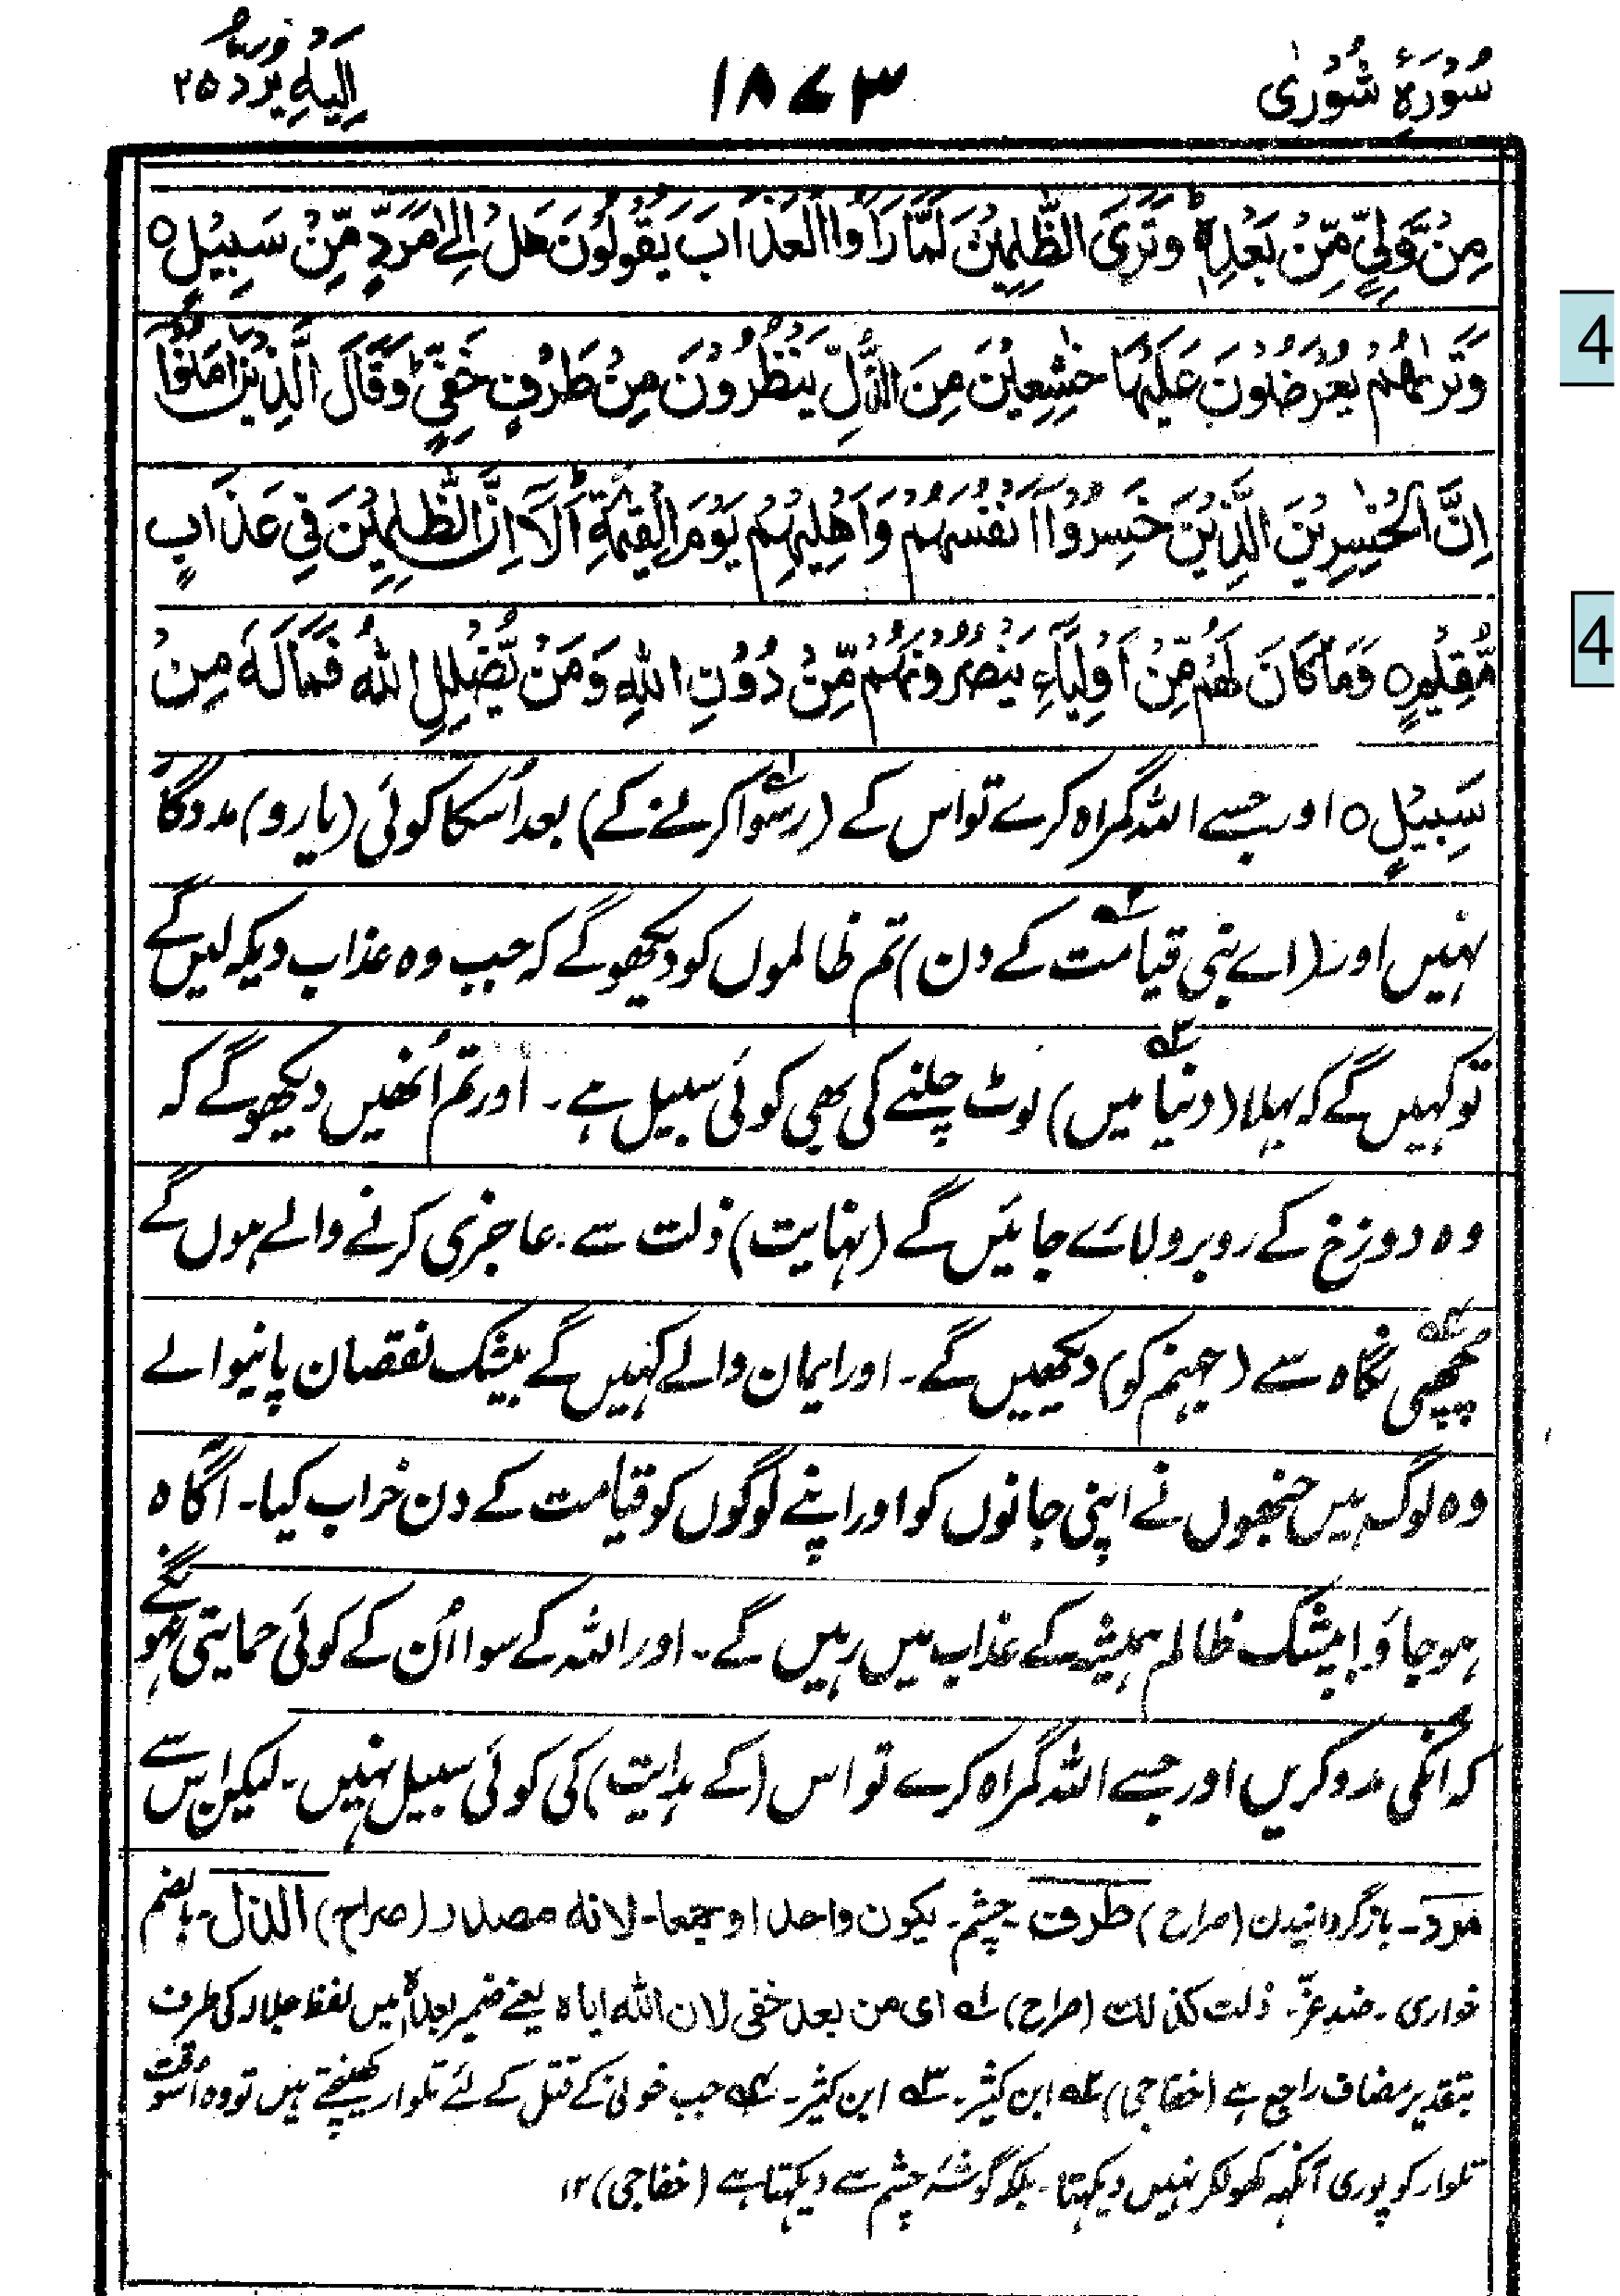 سُوْرَۃُ شُوْرٰی
١٨٧٣
اِلَیْہِ یُرَدُّ ٢٥
مِنْ وَّلِيٍّ مِّنْۢ بَعْدِهٖ ؕ وَتَرَى الظّٰلِمِيْنَ لَمَّا رَاَوُا الْعَذَابَ يَقُوْلُوْنَ هَلْ اِلٰى مَرَدٍّ مِّنْ سَبِيْلٍ ○
وَتَرٰىهُمْ يُعْرَضُوْنَ عَلَيْهَا خٰشِعِيْنَ مِنَ الذُّلِّ يَنْظُرُوْنَ مِنْ طَرْفٍ خَفِيٍّ ؕ وَقَالَ الَّذِيْنَ اٰمَنُوْۤا
4
اِنَّ الْخٰسِرِيْنَ الَّذِيْنَ خَسِرُوْۤا اَنْفُسَهُمْ وَاَهْلِيْهِمْ يَوْمَ الْقِيٰمَةِ ؕ اَلَاۤ اِنَّ الظّٰلِمِيْنَ فِيْ عَذَابٍ
مُّقِيْمٍ ○ وَمَا كَانَ لَهُمْ مِّنْ اَوْلِيَآءَ يَنْصُرُوْنَهُمْ مِّنْ دُوْنِ اللّٰهِ وَمَنْ يُّضْلِلِ اللّٰهُ فَمَا لَهٗ مِنْ
4
سَبِيْلٍ ○ اور جسے اللہ گمراہ کرے تو اس کے (رسوا ۱؎ کرنے کے) بعد اُسکا کوئی (یار و) مددگار
نہیں اور (اے نبی قیامت ۲؎ کے دن) تم ظالموں کو دیکھو گے کہ جب وہ عذاب دیکھ لیں گے
تو کہیں گے کہ بہلا (دنیا ۳؎ میں) لوٹ چلنے کی بھی کوئی سبیل ہے۔ اور تم اُنھیں دیکھو گے کہ
وہ دوزخ کے روبرو لائے جائیں گے (نہایت) ذلت سے۔ عاجزی کرنے والے ہوں گے
چُھپی ۴؎ نگاہ سے (جہنم کو) دیکھیں گے۔ اور ایمان والے کہیں گے بیشک نقصان پانیوالے
وہ لوگ ہیں جنھوں نے اپنی جانوں کو اور اپنے لوگوں کو قیامت کے دن خراب کیا۔ آگاہ
ہو جاؤ بیشک ظالم ہمیشہ کے عذاب میں رہیں گے۔ اور اللہ کے سوا اُن کے کوئی حمایتی نہونگے
کہ اُنکی مدد کریں اور جسے اللہ گمراہ کرے تو اس (کے ہدایت) کی کوئی سبیل نہیں۔ لیکن اس سے
مرد۔ بازگردانیدن (صراح) طرف۔ چشم۔ یکون واحدا و جمعا۔ لانہ مصدر (صراح) الذل۔ بالضم
خواری۔ ضد عزّ۔ ذلت کذلك (صراح) ۱؎ ای من بعد خفی لان اللہ اباہ یعنے ضمیر بعدہٖ میں لفظ جلالہ کی طرف
بتقدیر مضاف راجع ہے (خفاجی) ۲؎ ابن کثیر۔ ۳؎ ابن کثیر۔ ۴؎ جب خونی کے قتل کے لئے تلوار کھینچتے ہیں تو وہ اُسوقت
تلوار کو پوری آنکہہ کھولکر نہیں دیکہتا۔ بلکہ گوشۂ چشم سے دیکہتا ہے (خفاجی) ١٢